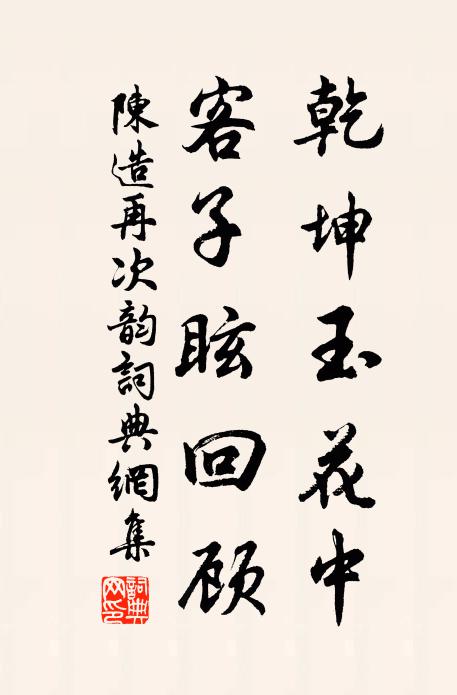 乾坤玉花中
客子眩回顾
陳造再次韵詞典網集
詞典網印